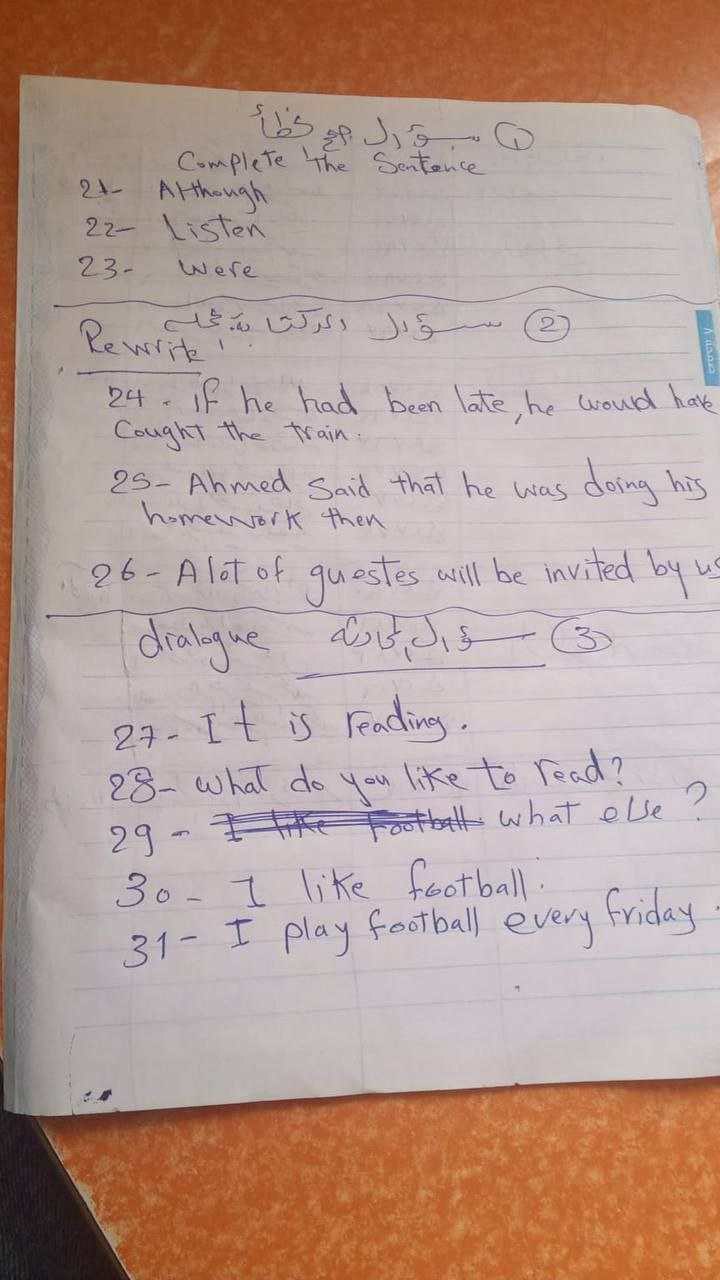 ① سؤال
Complete The Sentence
21- Although
22- Listen
23- were
② سؤال
Rewrite
24- if he had been late, he would have
Cought the train.
25- Ahmed Said that he was doing his
homework then
26- A lot of guestes will be invited by us
dialogue سؤال ③
27- It is reading.
28- What do you like to read?
29- I like Football. what else?
30- I like football.
31- I play football every friday.